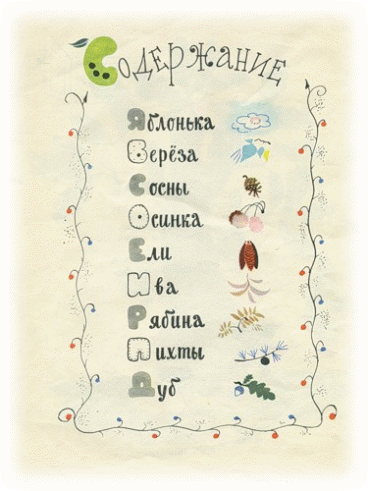 Содержание
Яблонька
Берёза
Сосны
Осинка
Ели
Ива
Рябина
Пихты
Дуб